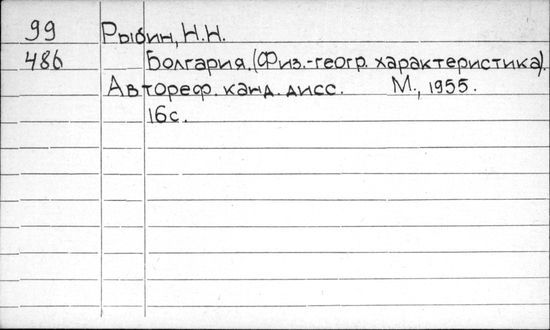 99 Рыбин, Н.Н.
486 Болгария. (Физ.-геогр. характеристика).
Автореф. канд. дисс. М., 1955.
16с.